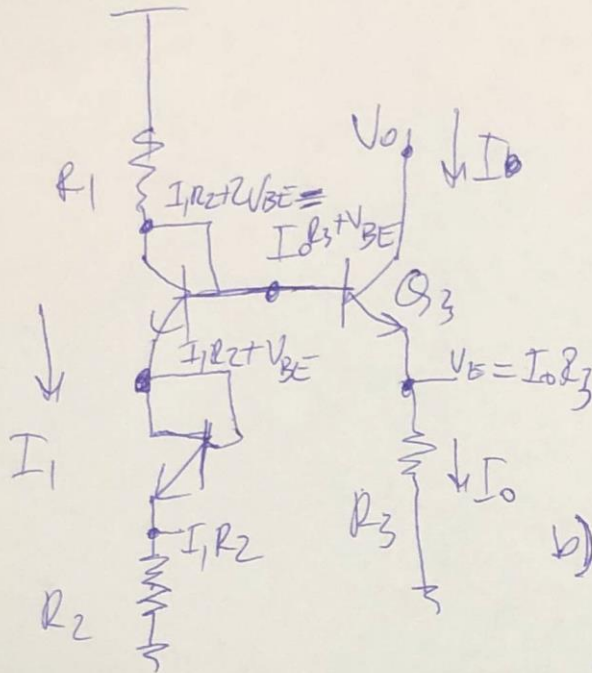 R1
I1R2+2VBE=
I0R3+VBE
V0
I0
Q3
I1R2+VBE
VE=I0R3
I1
I1R2
R3
I0
b)
R2